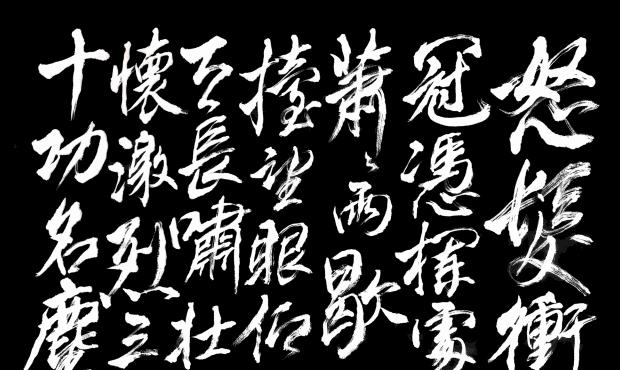 怒髮衝
冠憑欄處
蕭〻雨歇
擡望眼仰
天長嘯壯
懷激烈三
十功名塵